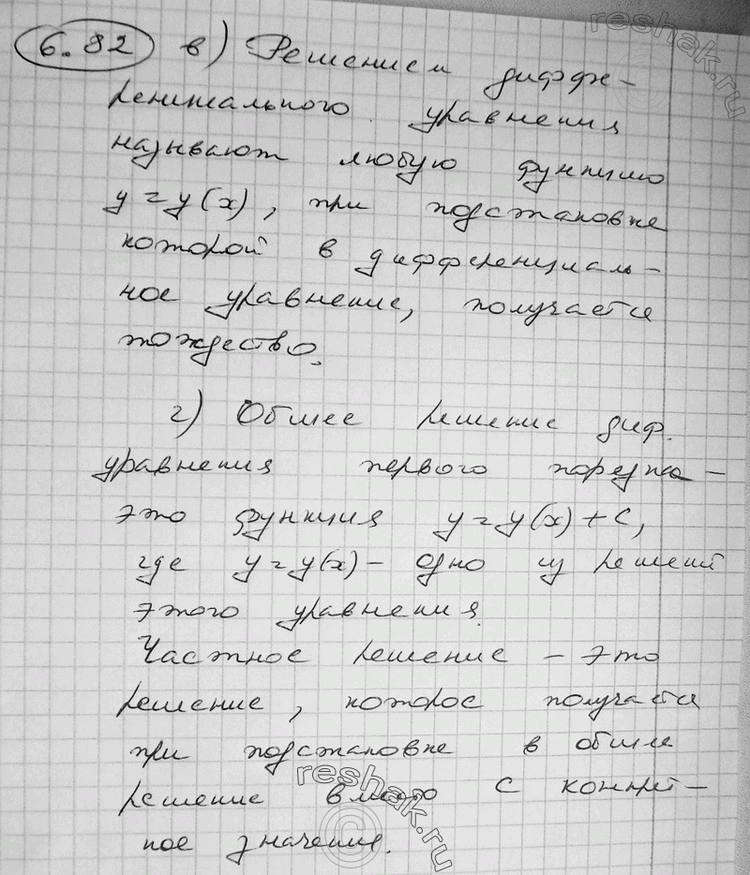 6.82 в) Решением диффе-
ренциального уравнения
называют любую функцию
y=y(x), при подстановке
которой в дифференциаль-
ное уравнение, получается
тождество.
г) Общее решение диф.
уравнения первого порядка -
это функция y=y(x)+C,
где y=y(x) - одно из решений
этого уравнения.
Частное решение - это
решение, которое получается
при подстановке в общее
решение вместо C конкрет-
ное значение.
reshak.ru
reshak.ru